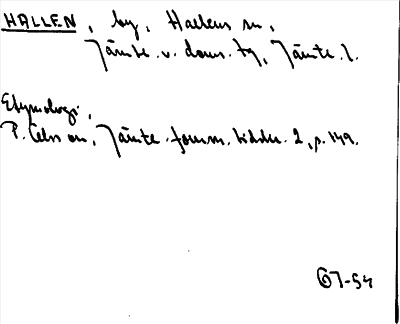 HALLEN, by, Hallens sn,
Jämtl. v. doms. tg, Jämtl. l.
Etymologi,
P. Olsson, Jämtl. fornm. tidskr. 2, p. 149.
67-54